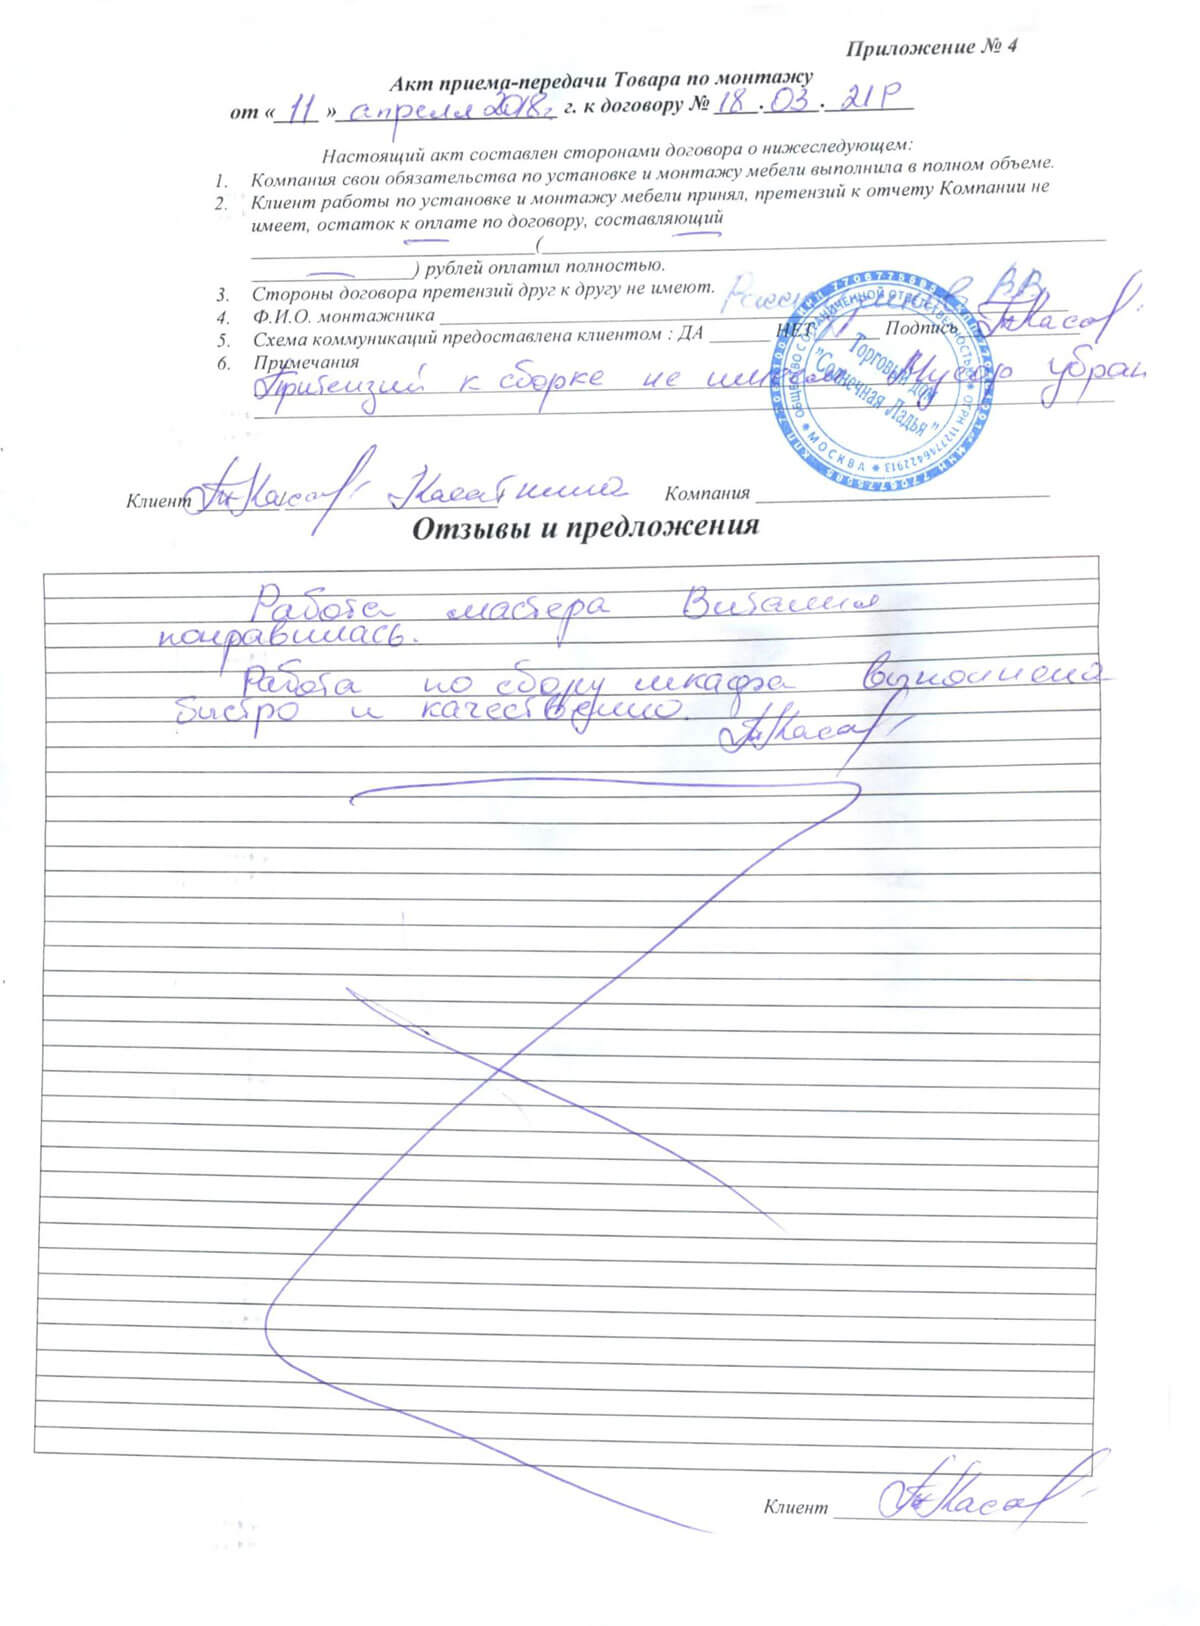 Приложение № 4
Акт приема-передачи Товара по монтажу
от « 11 » апреля 2018 г. г. к договору № 18 . 03 . 21Р
Настоящий акт составлен сторонами договора о нижеследующем:
1. Компания свои обязательства по установке и монтажу мебели выполнила в полном объеме.
2. Клиент работы по установке и монтажу мебели принял, претензий к отчету Компании не
имеет, остаток к оплате по договору, составляющий
(
) рублей оплатил полностью.
3. Стороны договора претензий друг к другу не имеют.
4. Ф.И.О. монтажника В.В.
5. Схема коммуникаций предоставлена клиентом : ДА НЕТ Подпись
6. Примечания
Притензий к сборке не имею. Мусор убран
ОБЩЕСТВО С ОГРАНИЧЕННОЙ ОТВЕТСТВЕННОСТЬЮ * ОГРН 1127746422913 * МОСКВА *
Торговый дом
"Солнечная Ладья"
Клиент Касаткина Компания
Отзывы и предложения
Работа мастера Виталия
понравилась.
Работа по сбору шкафа выполнена
быстро и качественно.
Клиент